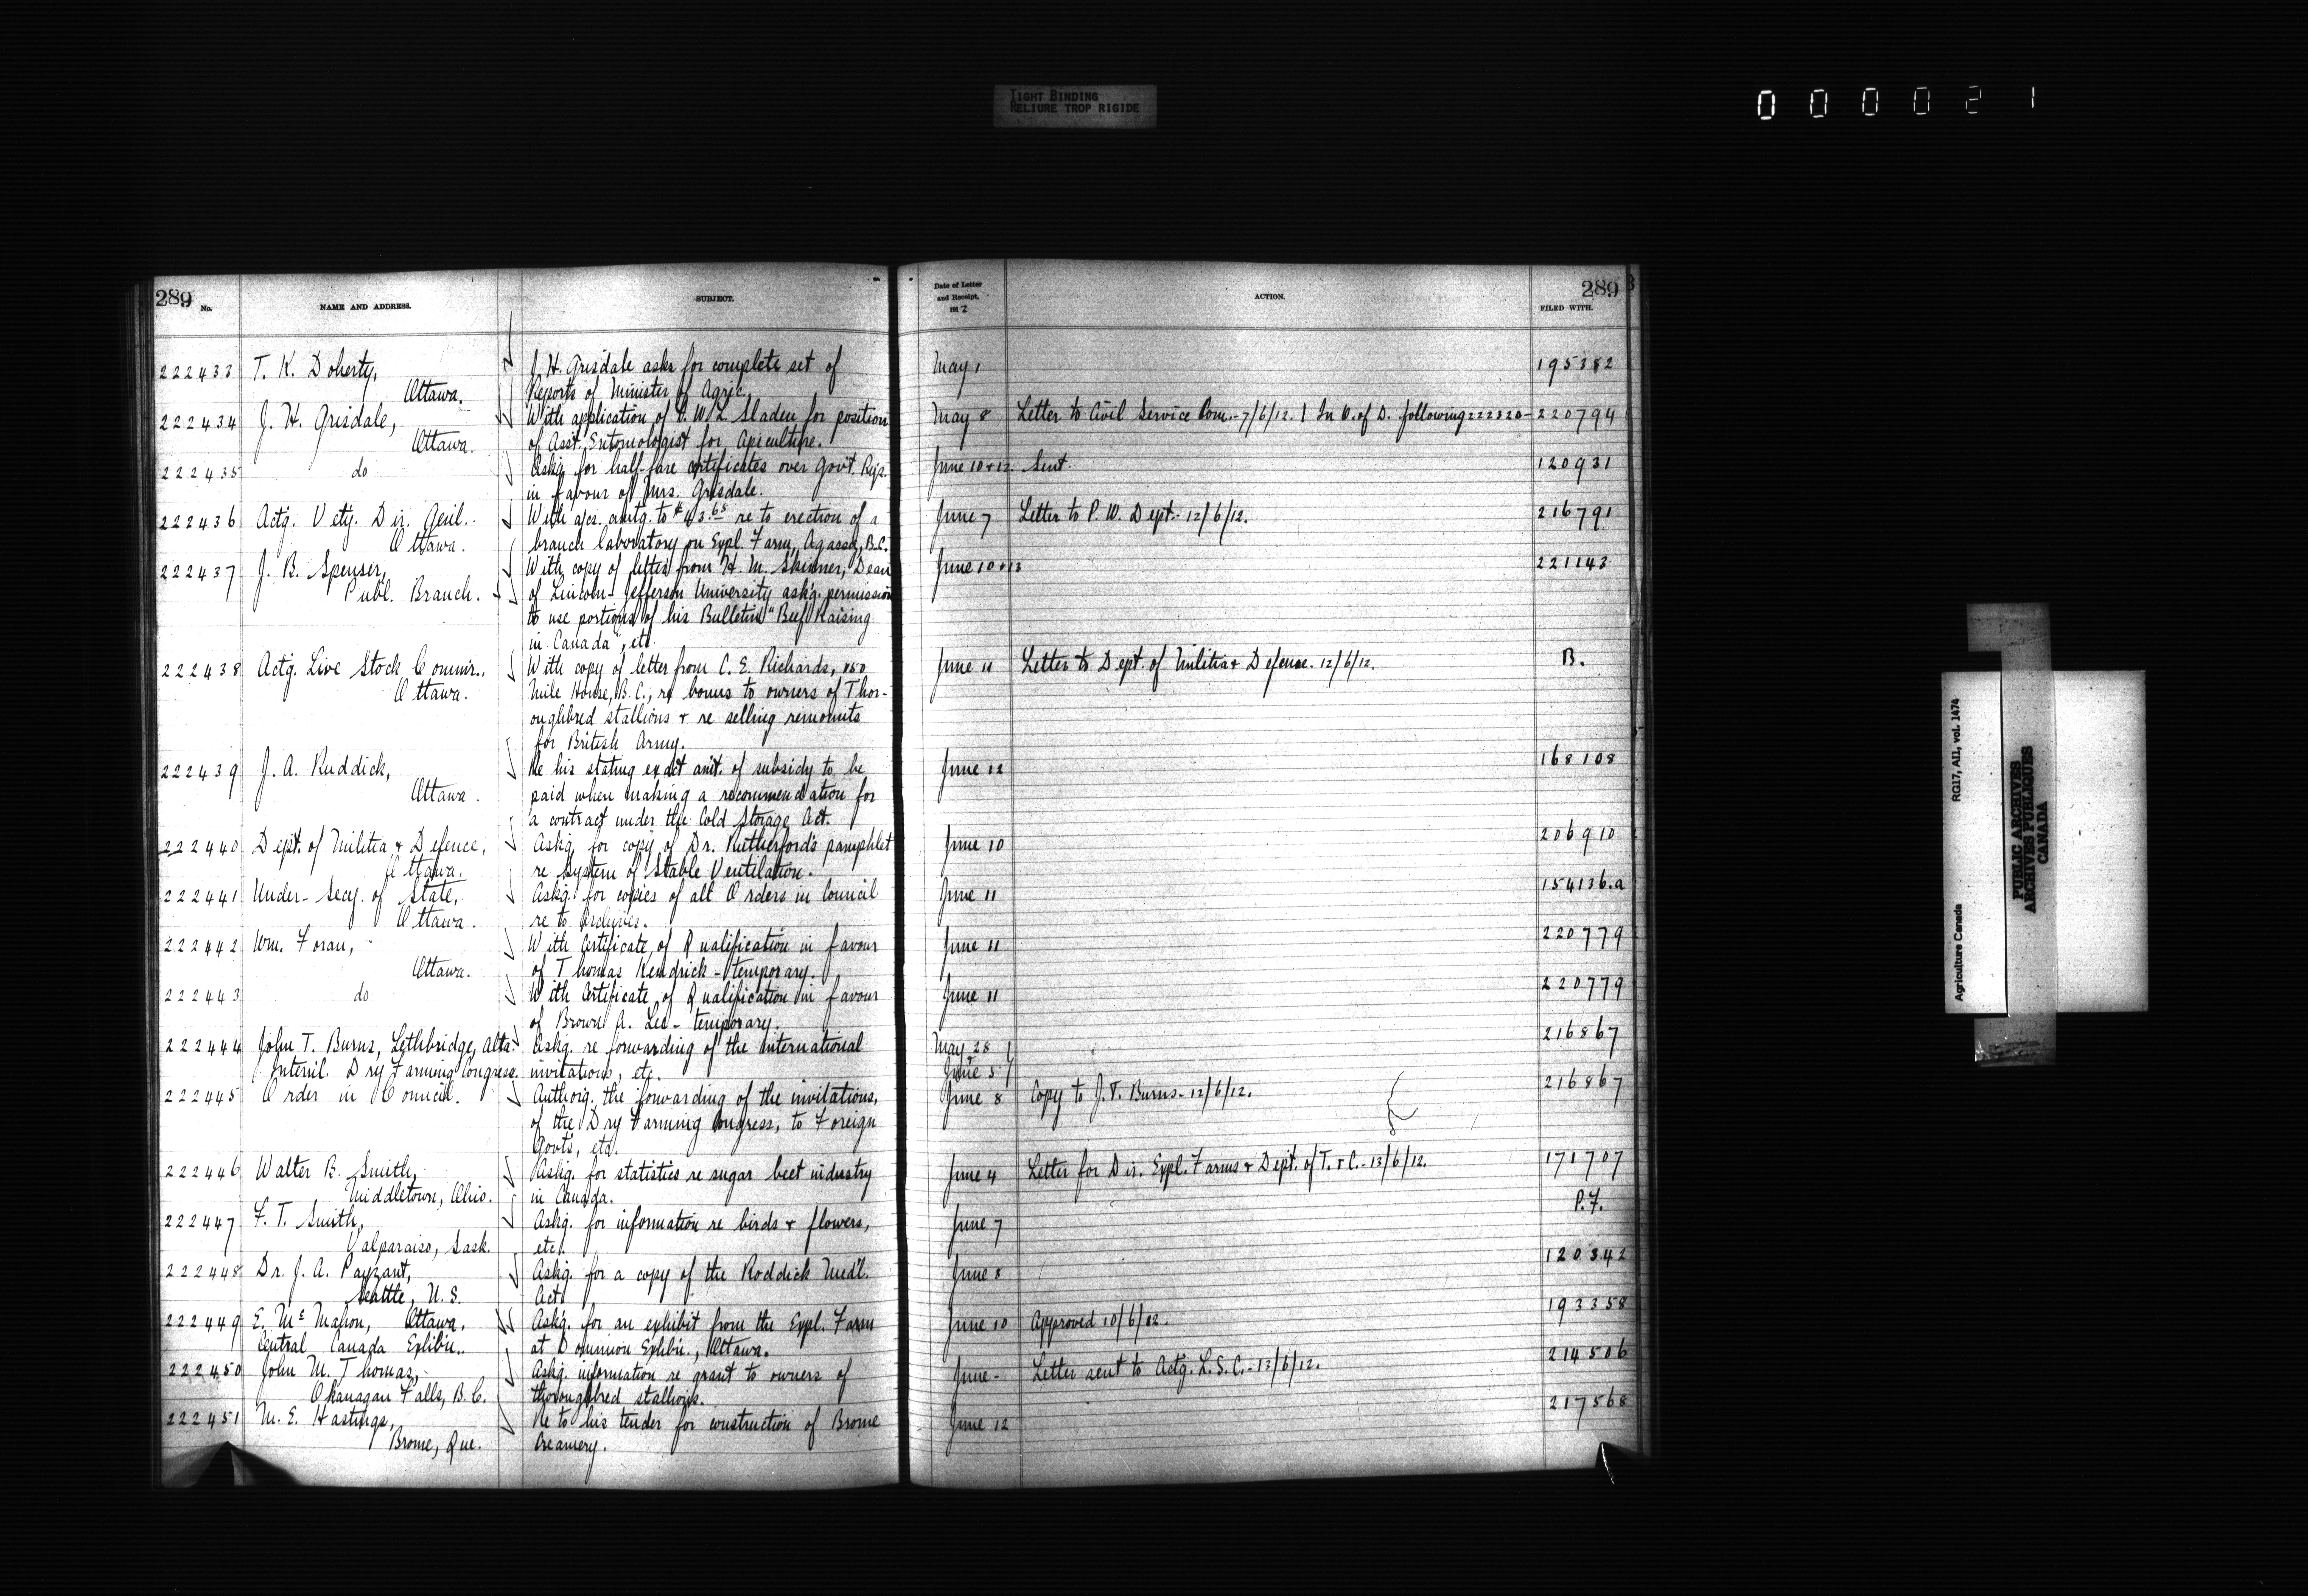 TIGHT BINDING
RELIURE TROP RIGIDE
000021
289
No. NAME AND ADDRESS. SUBJECT.
Date of Letter and Receipt, 191 2 ACTION. FILED WITH.
289
222433 T. K. Doherty, J. H. Grisdale asks for complete set of May 1 195382
Ottawa. Reports of Minister of Agric.
222434 J. H. Grisdale, With application of F. W. L. Sladen for position May 8 Letter to Civil Service Com.-7/6/12. | In O. of D. following 222320- 220794
Ottawa. of Asst. Entomologist for Apiculture.
222435 do Askg. for half-fare certificates over Gov't. Rys. June 10+12. Sent. 120931
in favour of Mrs. Grisdale.
222436 Actg. Vety. Dir. Genl.. With a/cs. amtg. to $43.65 re to erection of a June 7 Letter to P. W. Dept.- 12/6/12. 216791
Ottawa. branch laboratory on Expl. Farm, Agassiz, B.C.
222437 J. B. Spenser, With copy of letter from H. M. Skinner, Dean June 10+13 221143
Publ. Branch. of Lincoln-Jefferson University askg. permission
to use portions of his Bulletin "Beef Raising
in Canada", etc.
222438 Actg. Live Stock Commr.. With copy of letter from C. E. Richards, 150 June 11 Letter to Dept. of Militia + Defence. 12/6/12. B.
Ottawa. Mile House, B.C., re bonus to owners of Thor-
oughbred stallions + re selling remounts
for British Army.
222439 J. A. Ruddick, Re his stating exact amt. of subsidy to be June 12 168108
Ottawa. paid when making a recommendation for
a contract under the Cold Storage Act.
222440 Dept. of Militia + Defence, Askg. for copy of Dr. Rutherford's pamphlet June 10 206910
Ottawa. re System of Stable Ventilation.
222441 Under-Secy. of State, Askg. for copies of all Orders in Council June 11 154136.a
Ottawa. re to Archives.
222442 Wm. Foran, With Certificate of Qualification in favour June 11 220779
Ottawa. of Thomas Kendrick - temporary.
222443 do With Certificate of Qualification in favour June 11 220779
of Brown A. Lee - temporary.
222444 John T. Burns, Lethbridge, Alta. Askg. re forwarding of the international May 28 216867
Internl. Dry Farming Congress. invitations, etc. + June 5
222445 Order in Council. Authorg. the forwarding of the invitations, June 8 Copy to J. T. Burns - 12/6/12. 216867
of the Dry Farming Congress, to Foreign
Govts, etc.
222446 Walter B. Smith, Askg. for statistics re sugar beet industry June 4 Letter for Dir. Expl. Farms + Dept. of T. + C. - 13/6/12. 171707
Middletown, Ohio. in Canada.
222447 F. T. Smith, Askg. for information re birds + flowers, June 7 P.F.
Valparaiso, Sask. etc.
222448 Dr. J. A. Payzant, Askg. for a copy of the Roddick Med'l. June 8 120342
Seattle, U. S. Act.
222449 E. McMahon, Ottawa. Askg. for an exhibit from the Expl. Farm June 10 Approved 10/6/12. 193358
Central Canada Exhibn.. at Dominion Exhbn., Ottawa.
222450 John M. Thomas, Askg. information re grant to owners of June - Letter sent to Actg. L. S. C. - 13/6/12. 214506
Okanagan Falls, B. C. thoroughbred stallions.
222451 M. E. Hastings, Re to his tender for construction of Brome June 12 217568
Brome, Que. Creamery.
Agriculture Canada RG17, AII, vol. 1474
PUBLIC ARCHIVES
ARCHIVES PUBLIQUES
CANADA